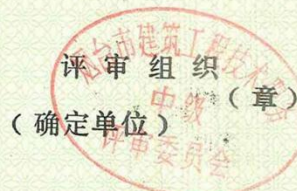 评审组织
（章）
（确定单位）
市建筑工程技术
中级
评审委员会